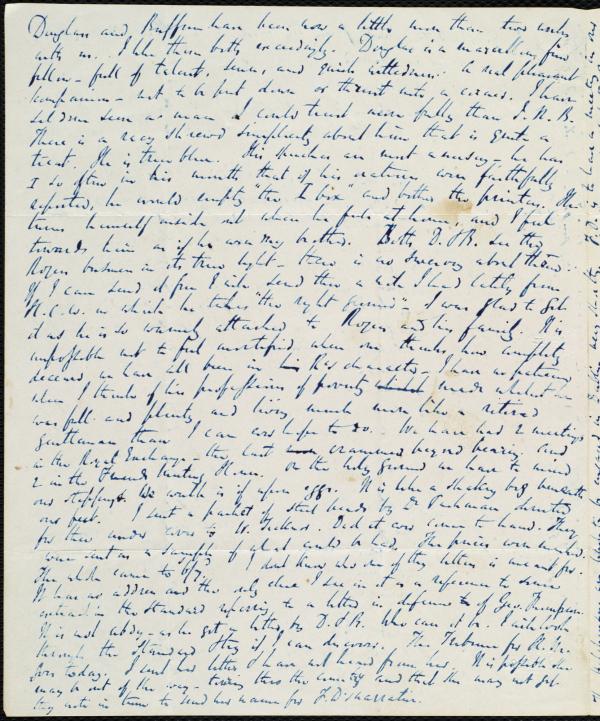 Douglass and Buffum have been now a little more than two weeks
with us. I like them both exceedingly. Douglass is a marvellous fine
fellow - full of talent, sense, and quick wittedness: a real pleasant
companion - not to be put down or thrust into a corner. I have
seldom seen a man I could trust more fully than J. N. B.
There is a racy shrewd simplicity about him that is quite a
treat. He is true blue. His speeches are most amusing - he has
I so often in his mouth that if his orations were faithfully
reported, he would empty "the I box" and bother the printers. He
turns himself inside out when he feels at home, and I feel
towards him as if he were my brother. Both D. & B. see this
Rogers business in its true light - there is no swerving about them:
If I can send it free I will send thee a note I had lately from
N.C.W. in which he takes "the right ground" - I was glad to get
it as he is so warmly attached to Rogers and his family. It is
impossible not to feel mortified, when one thinks how completely
deceived we have all been in R's character - I have no patience
when I think of his professions of poverty made whilst he
was full and plenty and living much more like a retired
gentleman than I can ever hope to do. - We have had 2 meetings
in the Royal Exchange - the last crammed beyond bearing. And
2 in the Friends Meeting House. On the holy ground we have to mind
our stepping. It is like a shaking bog beneath
our feet. I sent a packet of steel beads by Dr Parkman directed
for thee under cover to W. Did it ever come to hand. They
were sent as a sample of what could be had. The prices were marked.
The whole came to I don't know who one of thy letters is meant for.
It has no address and the only clue I see in it is a reference to some
in the Standard referring to a letter in defence of Geo. Thompson.
It is not abdy - as he got a letter by D. & B. Who can it be. I will look
through the Standard to see if I can discover. The Tribune for R. 
goes today. I sent her letter & have not heard from her. It is possible she
may be out of the way - touring thro the country and that she may not get
thy note in time to send her name for F. D's narrative.